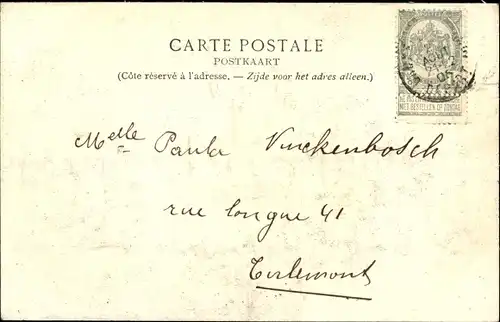 CARTE POSTALE
POSTKAART
(Côte réservé à l'adresse. — Zijde voor het adres alleen.)
NIET BESTELLEN OP ZONDAG
Melle Paula Vinckenbosch
rue longue 41
Tirlemont